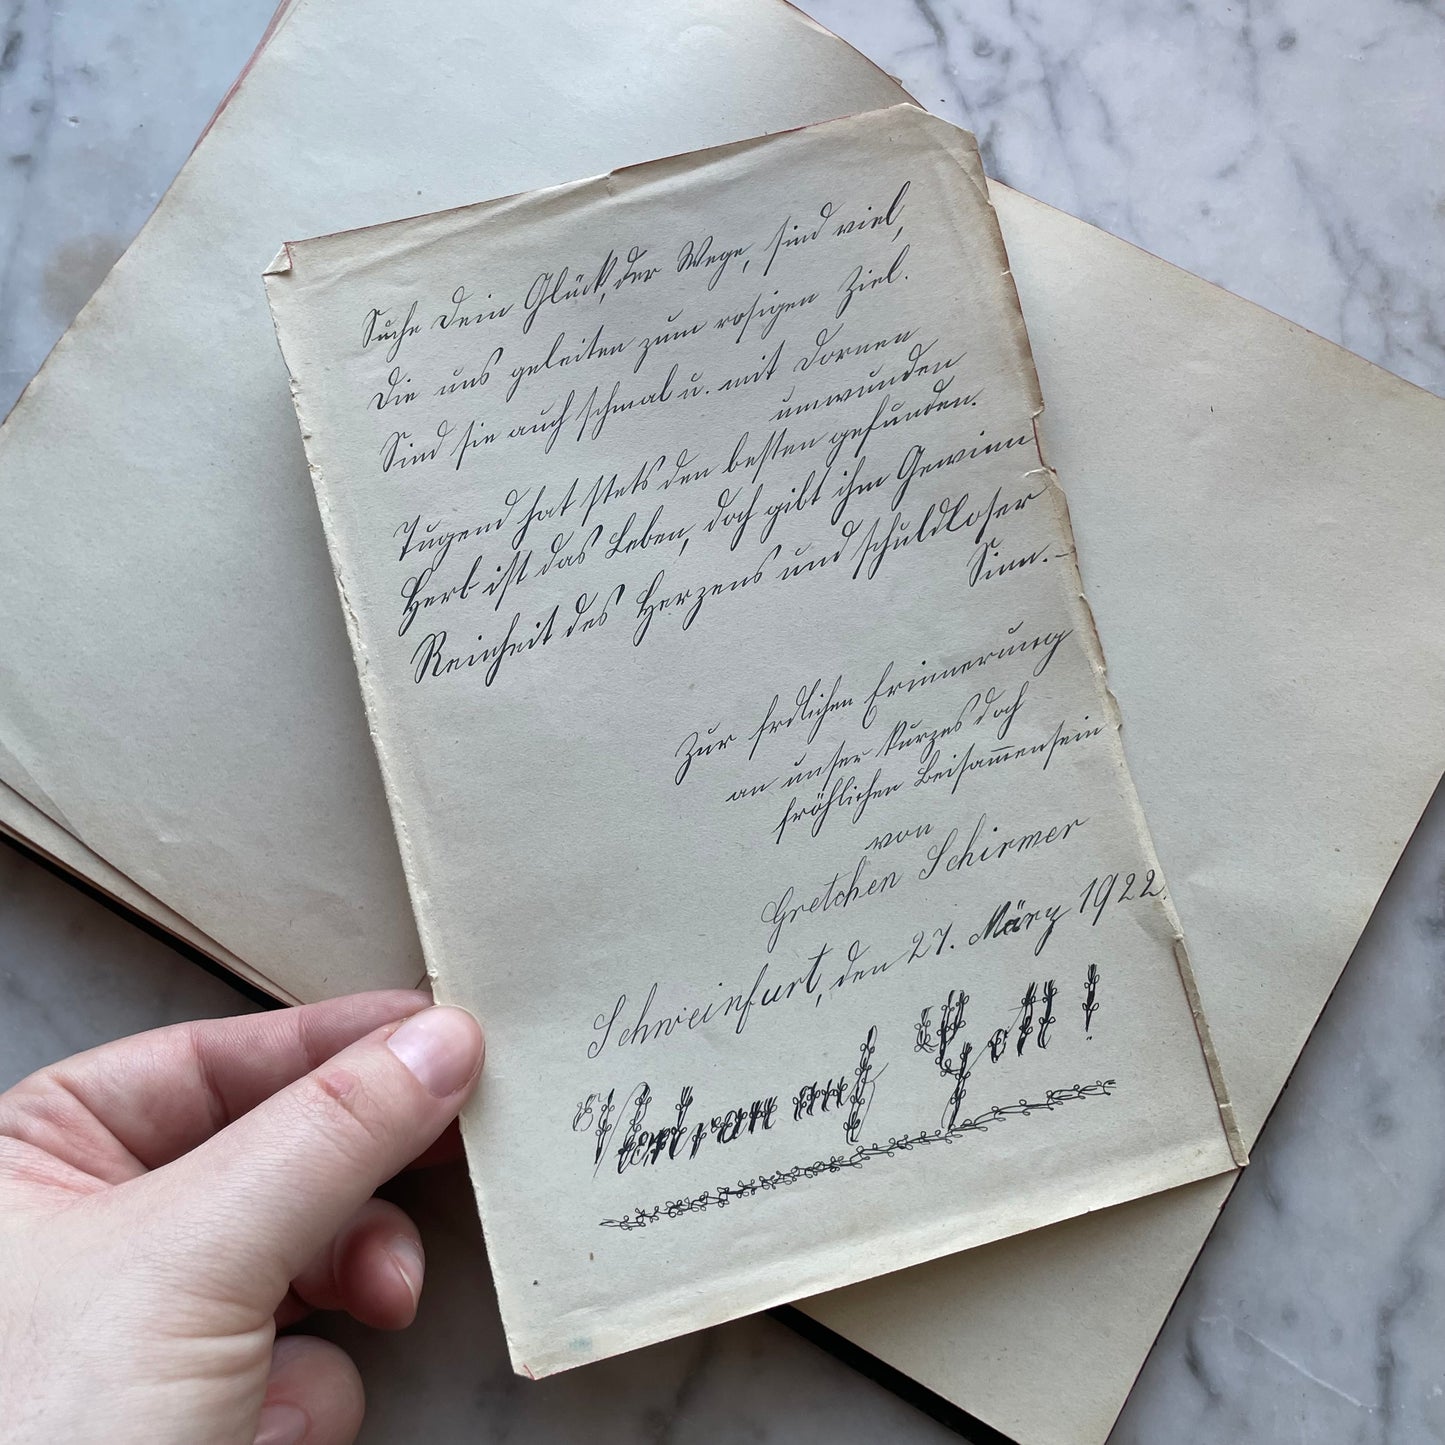 Suche Dein Glück, der Wege, sind viel,
Die uns geleiten zum rosigen Ziel.
Sind sie auch schmal u. mit Dornen
umwunden
Tugend hat stets den besten gefunden.
Herb ist das Leben, doch gibt ihm Gewinn
Reinheit des Herzens und schuldloser
Sinn.–
Zur frdlichen Erinnerung
an unser kurzes doch
fröhlichen Beisam̅ensein
von
Gretchen Schirmer
Schweinfurt, den 27. März 1922.
Vertrau auf Gott!